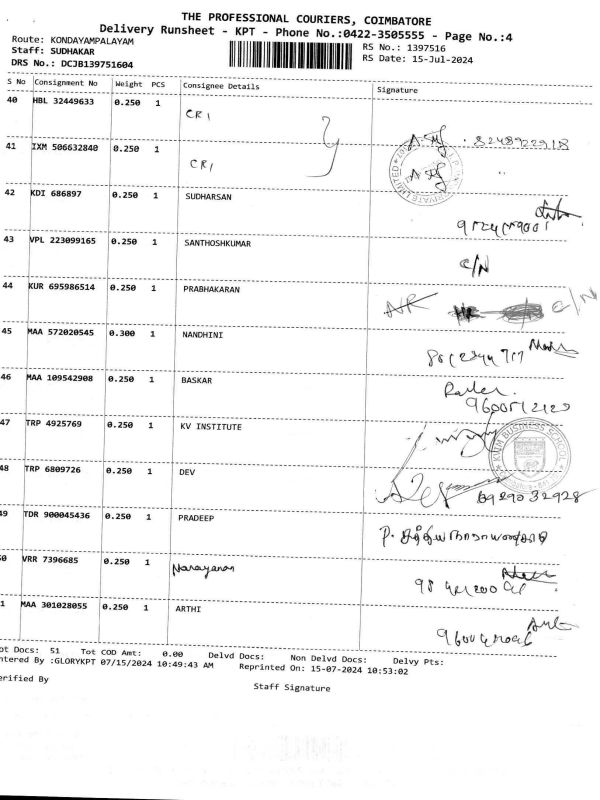 THE PROFESSIONAL COURIERS, COIMBATORE
Delivery Runsheet - KPT - Phone No.:0422-3505555 - Page No.:4
Route: KONDAYAMPALAYAM RS No.: 1397516
Staff: SUDHAKAR RS Date: 15-Jul-2024
DRS No.: DCJB139751604
S No Consignment No Weight PCS Consignee Details Signature
40 HBL 32449633 0.250 1 CRI
41 IXM 506632840 0.250 1 CRI
42 KDI 686897 0.250 1 SUDHARSAN
43 VPL 223099165 0.250 1 SANTHOSHKUMAR C/N
44 KUR 695986514 0.250 1 PRABHAKARAN NR C/N
45 MAA 572020545 0.300 1 NANDHINI
46 MAA 109542908 0.250 1 BASKAR
47 TRP 4925769 0.250 1 KV INSTITUTE
KVIM BUSINESS SCHOOL
48 TRP 6809726 0.250 1 DEV
49 TDR 900045436 0.250 1 PRADEEP
50 VRR 7396685 0.250 1 Narayanan
1 MAA 301028055 0.250 1 ARTHI
ot Docs: 51 Tot COD Amt: 0.00 Delvd Docs: Non Delvd Docs: Delvy Pts:
ntered By :GLORYKPT 07/15/2024 10:49:43 AM Reprinted On: 15-07-2024 10:53:02
erified By
Staff Signature